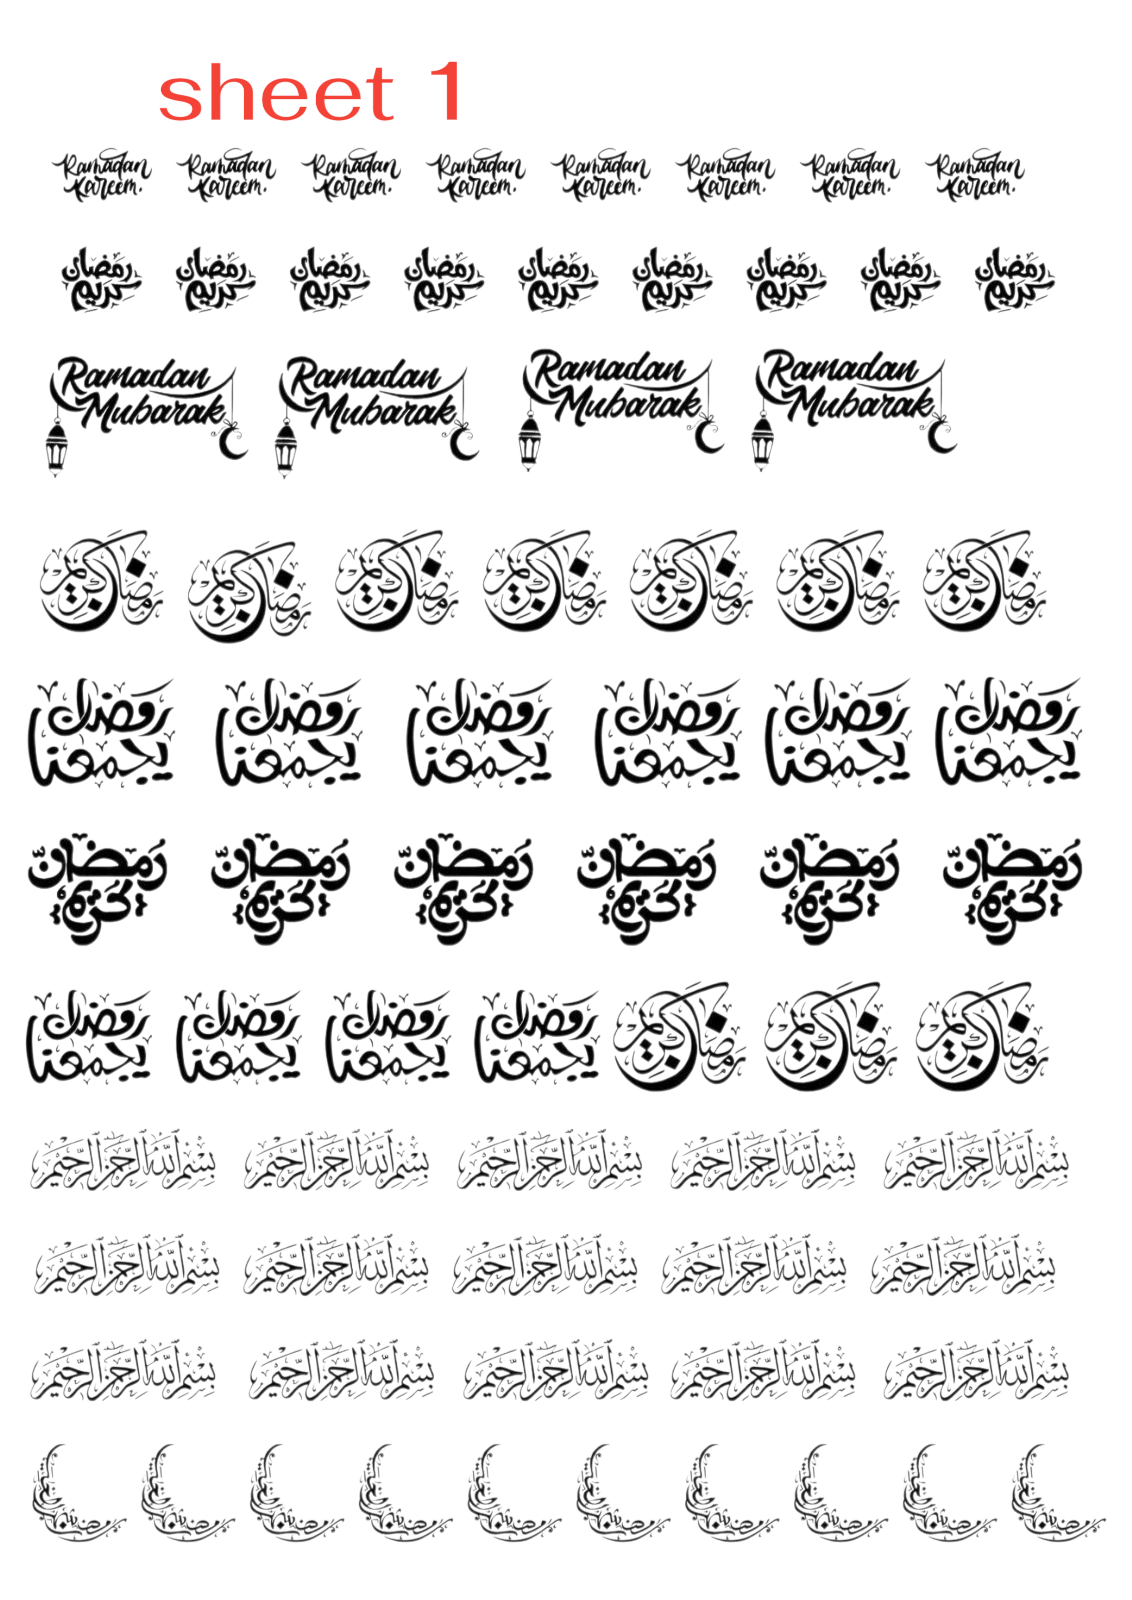 sheet 1
Ramadan Kareem. Ramadan Kareem. Ramadan Kareem. Ramadan Kareem. Ramadan Kareem. Ramadan Kareem. Ramadan Kareem. Ramadan Kareem.
رمضان كريم رمضان كريم رمضان كريم رمضان كريم رمضان كريم رمضان كريم رمضان كريم رمضان كريم رمضان كريم
Ramadan Mubarak Ramadan Mubarak Ramadan Mubarak Ramadan Mubarak
رمضان كريم رمضان كريم رمضان كريم رمضان كريم رمضان كريم رمضان كريم رمضان كريم
رمضان يجمعنا رمضان يجمعنا رمضان يجمعنا رمضان يجمعنا رمضان يجمعنا رمضان يجمعنا
رمضان كريم رمضان كريم رمضان كريم رمضان كريم رمضان كريم رمضان كريم
رمضان كريم رمضان كريم رمضان كريم رمضان يجمعنا رمضان يجمعنا رمضان يجمعنا رمضان يجمعنا
بسم الله الرحمن الرحيم بسم الله الرحمن الرحيم بسم الله الرحمن الرحيم بسم الله الرحمن الرحيم بسم الله الرحمن الرحيم
بسم الله الرحمن الرحيم بسم الله الرحمن الرحيم بسم الله الرحمن الرحيم بسم الله الرحمن الرحيم بسم الله الرحمن الرحيم
بسم الله الرحمن الرحيم بسم الله الرحمن الرحيم بسم الله الرحمن الرحيم بسم الله الرحمن الرحيم بسم الله الرحمن الرحيم